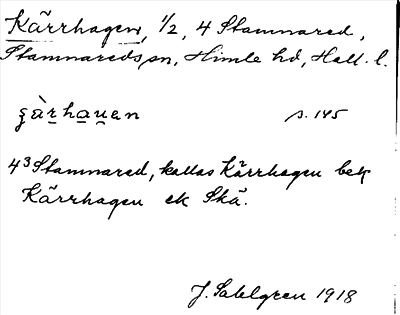 Kärrhagen, 1/2, 4 Stamnared,
Stamnareds sn, Himle hd, Hall. l.
s. 145
4³ Stamnared, kallas Kärrhagen bek
Kärrhagen ek Skå.
J. Sahlgren 1918